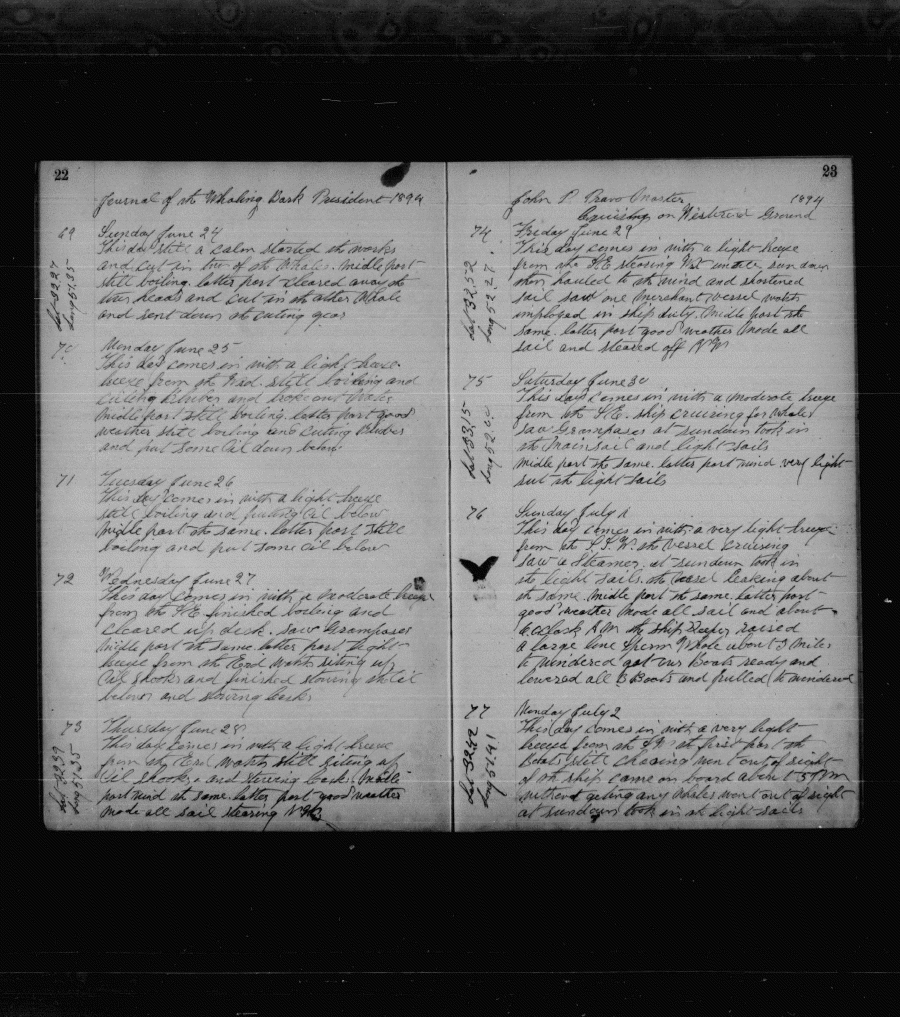 22
Journal of the Whaling Bark President 1894
69 Sunday June 24
This day still a calm started the works
and cut in two of the Whales. Middle part
still boiling. latter part cleared away the
heads and cut in the other Whale
and sent down the cuting gear
Lat 32.27
Long 51.35
70 Monday June 25
This day comes in with a light breeze
breeze from the still boiling and
cuting Bluber and broke out
Middle part still boiling. latter part good
weather still boiling and cuting Bluber
and put some Oil down below
71 Tuesday June 26
This day comes in with a light breeze
still boiling and puting Oil below
Middle part the same. latter part still
boiling and put some oil below
72 Wednesday June 27
This day comes in with a moderate breeze
from the finished boiling and
cleared up deck. saw Grampases
Middle part the same. latter part light
breeze from the Erd watch siting up
Oil shooks and finished stowing the oil
below and stowing casks
73 Thursday June 28
This day comes in with a light breeze
from the Erd watch still siting up
Oil shooks and stowing casks. Middle
part wind the same. latter part good weather
Made all sail stearing
Lat 32.39
Long 51.35
23
John P. Pravo Master 1894
Cruising on Western Ground
74 Friday June 29
This day comes in with a light breeze
from the stearing until sun down
then hauled to the wind and shortened
sail saw one Merchant Vessel watch
imployed in ship duty. Middle part the
same. latter part good weather Made all
sail and steared off
Lat 32.52
Long 52.27
75 Saturday June 30
This day comes in with a moderate breeze
from the ship cruising for Whales
saw Grampases at sundown took in
the Mainsail and light sails
Middle part the same. latter part wind very light
set the light sails
Lat 33.15
Long 52.00
76 Sunday July 1
This day comes in with a very light breeze
from the the Vessel Cruising
saw a Steamer. at sundown took in
the light sails. the Vessel leaking about
the same. Middle part the same. latter part
good weather Made all sail and about
6 oClock A.M. the ship raised
a large lone Sperm Whale about 3 Miles
to windered got our Boats ready and
lowered all 3 Boats and pulled to windered
77 Monday July 2
This day comes in with a very light
breeze from the the first part the
Boats still chasing went out of sight
of the ship came on board about 5 P.M
without geting any Whales went out of sight
at sundown took in the light sails
Lat 32.52
Long 51.41